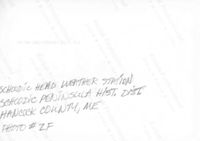 SCHOODIC HEAD WEATHER STATION,
SCHOODIC PENINSULA HIST. DIST.
HANCOCK COUNTY, ME
PHOTO # 2F